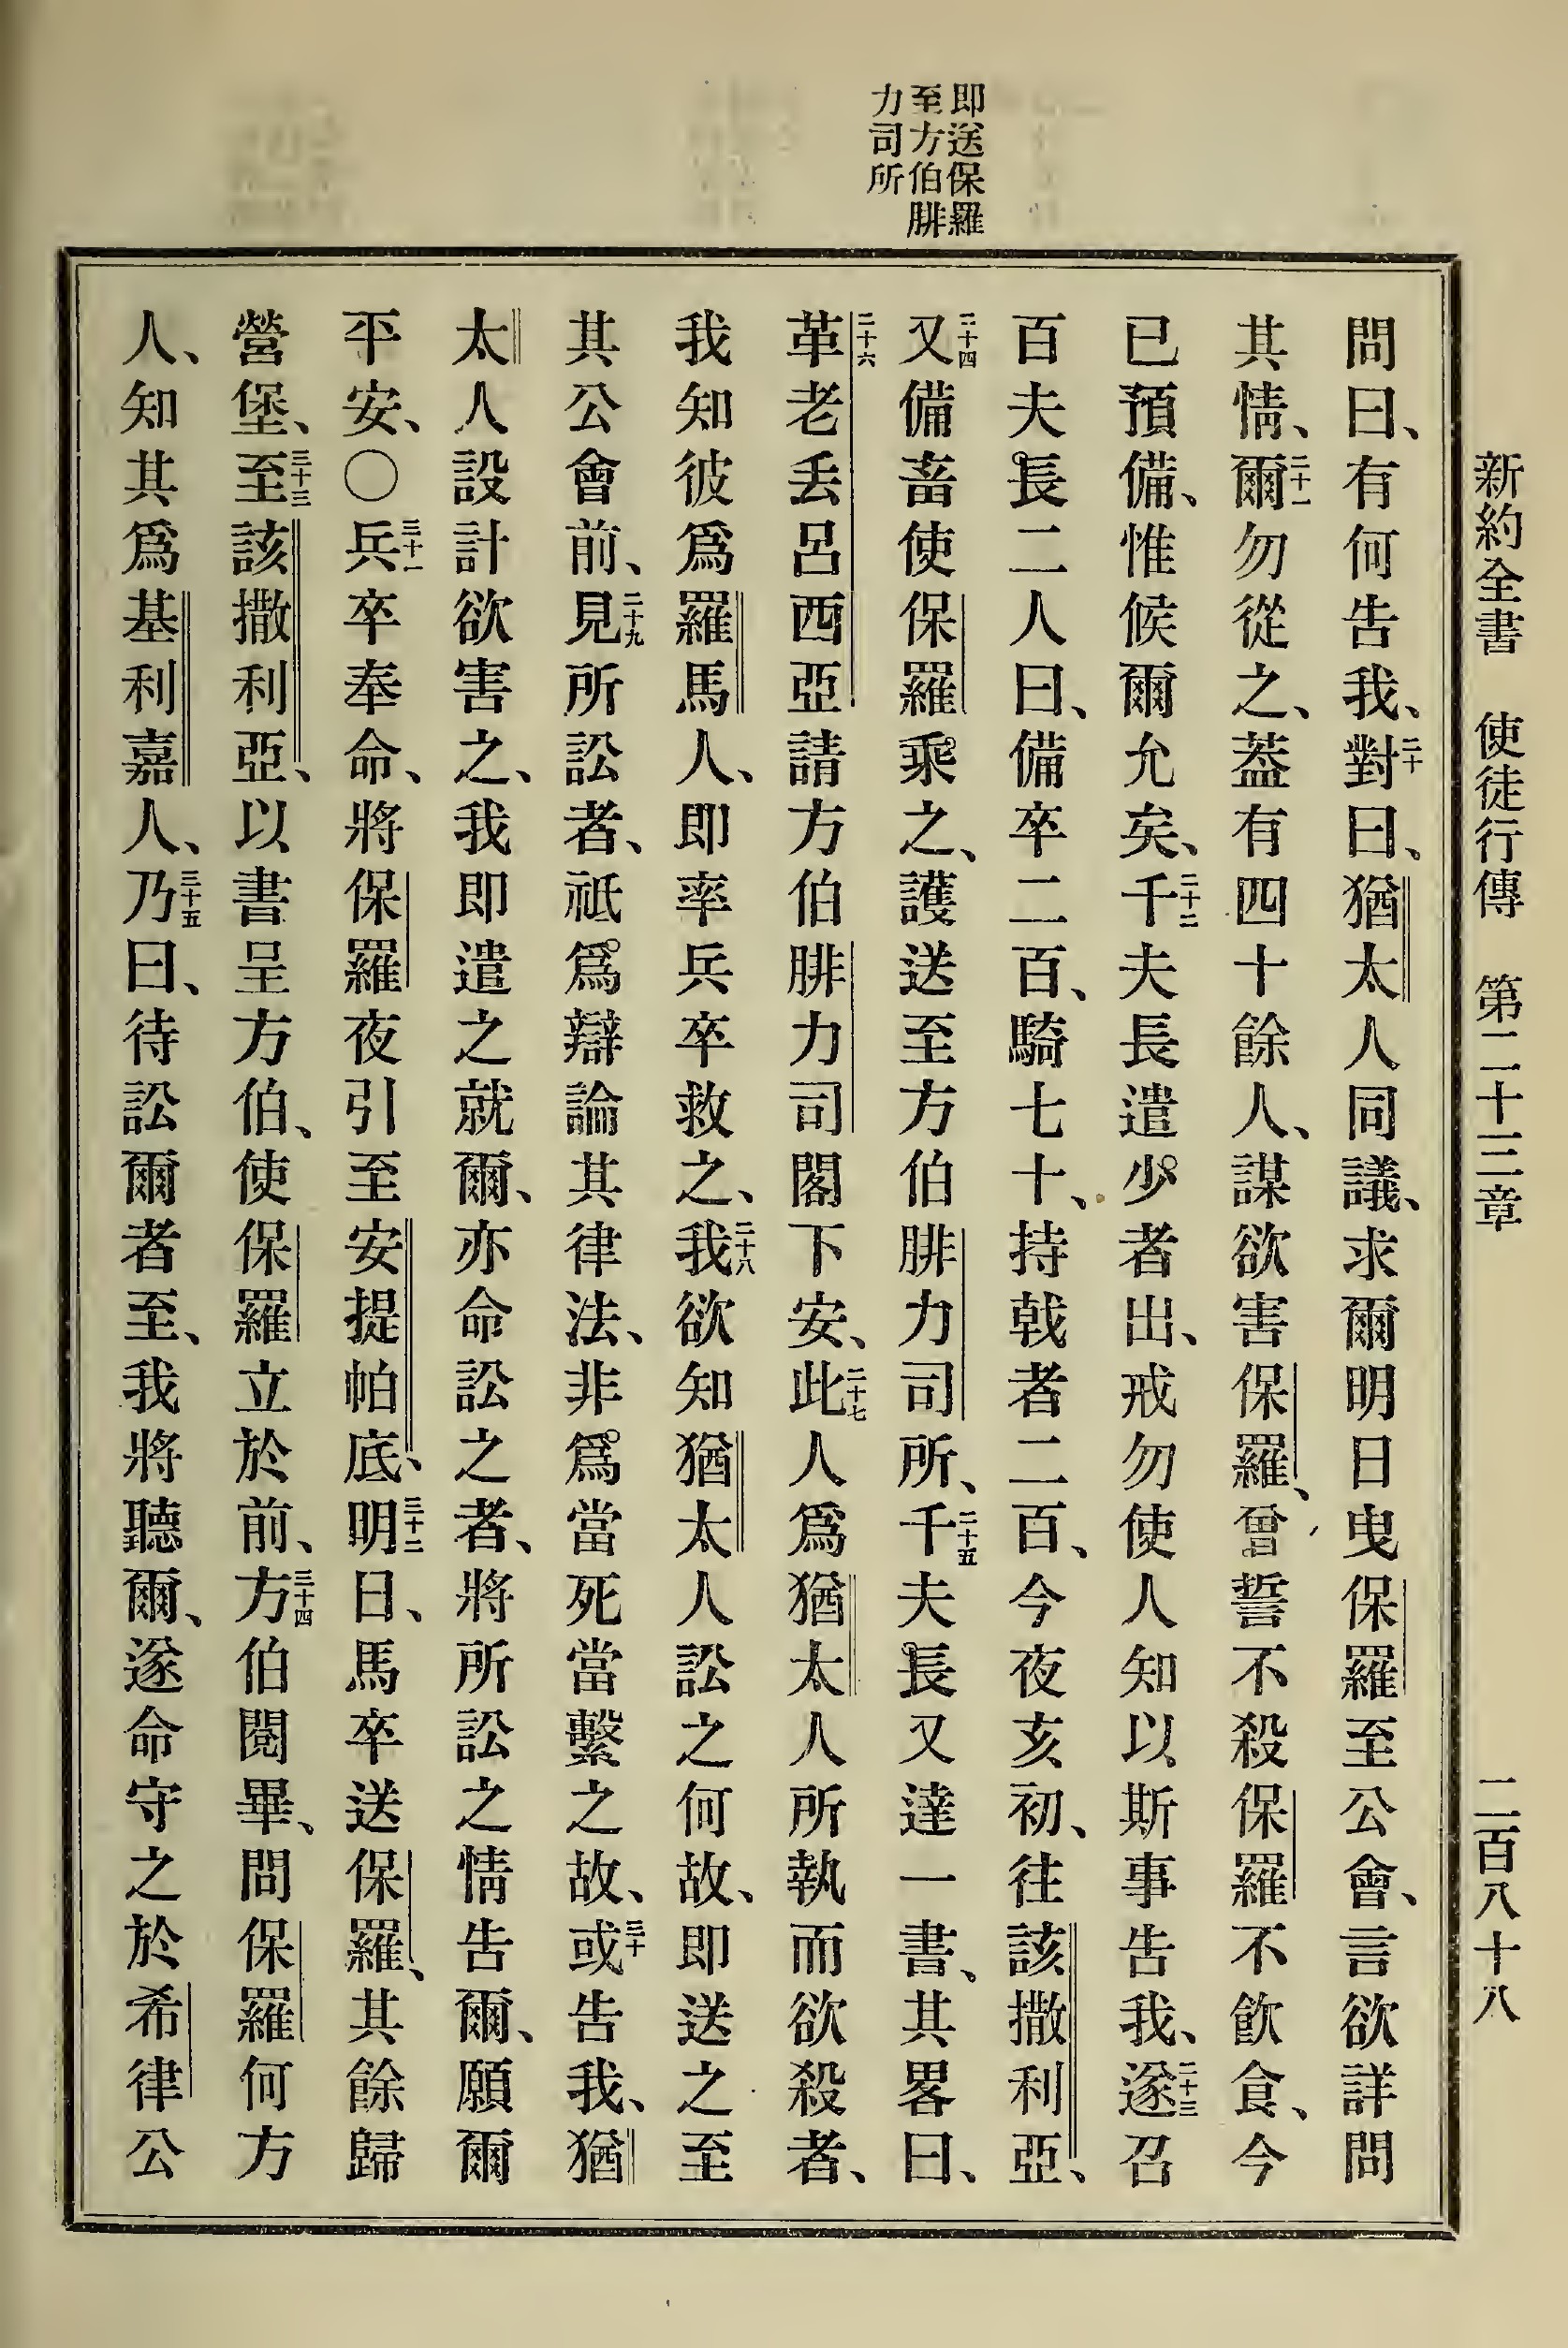 新約全書 使徒行傳 第二十三章 二百八十八
即送保羅
至方伯腓
力司所
問曰、有何告我、二十對曰、猶太人同議、求爾明日曳保羅至公會、言欲詳問
其情、二十一爾勿從之、葢有四十餘人、謀欲害保羅、曾誓不殺保羅不飮食、今
已預備、惟候爾允矣、二十二千夫長遣少者出、戒勿使人知以斯事告我、二十三遂召
百夫長二人曰、備卒二百、騎七十、持戟者二百、今夜亥初、往該撒利亞、
二十四又備畜使保羅乘之、護送至方伯腓力司所、二十五千夫長又達一書、其畧曰、
二十六革老丢呂西亞請方伯腓力司閣下安、二十七此人爲猶太人所執而欲殺者、
我知彼爲羅馬人、即率兵卒救之、二十八我欲知猶太人訟之何故、即送之至
其公會前、二十九見所訟者、祇爲辯論其律法、非爲當死當繫之故、三十或告我、猶
太人設計欲害之、我即遣之就爾、亦命訟之者、將所訟之情告爾、願爾
平安、〇三十一兵卒奉命、將保羅夜引至安提帕底、三十二明日、馬卒送保羅、其餘歸
營堡、三十三至該撒利亞、以書呈方伯、使保羅立於前、三十四方伯閱畢、問保羅何方
人、知其爲基利嘉人、三十五乃曰、待訟爾者至、我將聽爾、遂命守之於希律公